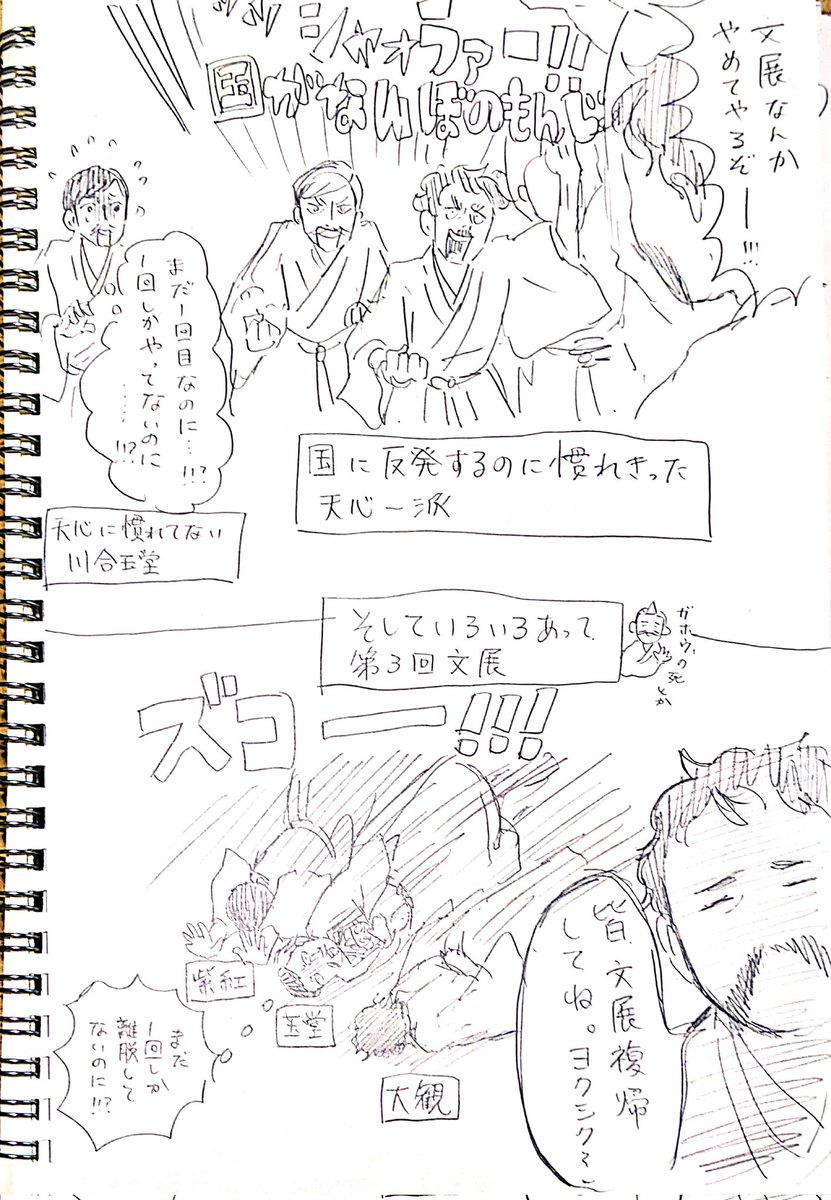 文展なんか
やめてやるぞー!!!
シャオラァー!!
国がなんぼのもんじ
まだ1回目なのに…!!?
1回しかやってないのに
……!!?
国に反発するのに慣れきった
天心一派
天心に慣れてない
川合玉堂
そしていろいろあって
第3回文展
ガホウの死
とか
ズコー!!!
皆、文展複帰
してね。ヨクシク
紫紅
玉堂
大観
まだ
1回しか
離脱して
ないのに!!?